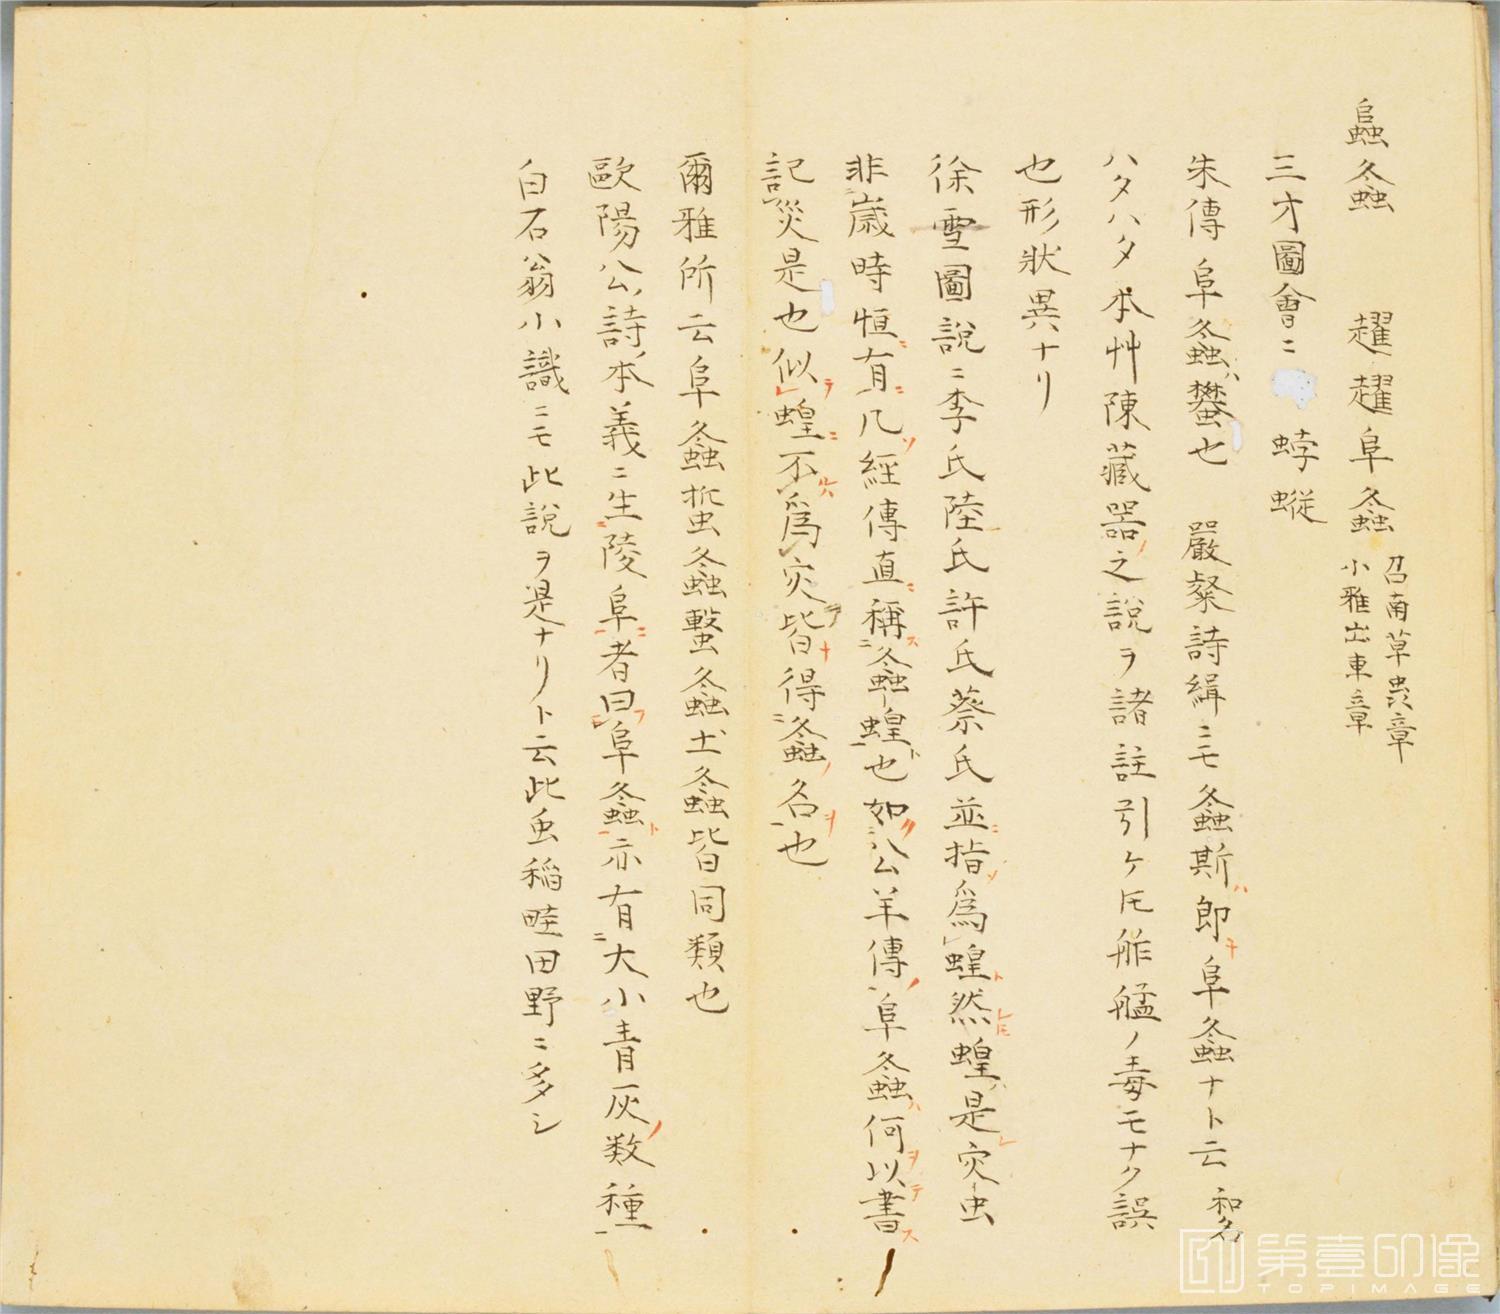 𧒂螽　趯趯阜螽 召南草虫章
小雅出車章
三才圖會ニ　蛗　蜙
朱傳阜螽ハ蠜也　嚴粲詩緝ニモ螽斯ハ即チ阜螽ナト云 和名
ハタハタ本艸陳藏器ノ之説ヲ諸註引ケ𪜈舴艋ノ毒モナク誤
也形狀異ナリ
徐雪圖説ニ李氏陸氏許氏蔡氏並ニ指ソ爲蝗ト然レ𪜈蝗ハ是レ灾虫
非歳時恒ニ有ニ凡ソ經傳直ニ稱ス螽蝗ト也如ク公羊傳ノ阜螽ハ何ヲ以テ書ス
記災是也似テ蝗ニ不爲灾皆ナ得螽ノ名ヲ也
爾雅所云阜螽蜤螽蟿螽土螽皆同類也
歐陽公詩本義ニ生陵阜ニ者曰フ阜螽ト亦有大小青灰ノ数種
白石翁小識ニモ此説ヲ是ナリト云此虫稲畦田野ニ多シ
第壹印像
TOPIMAGE